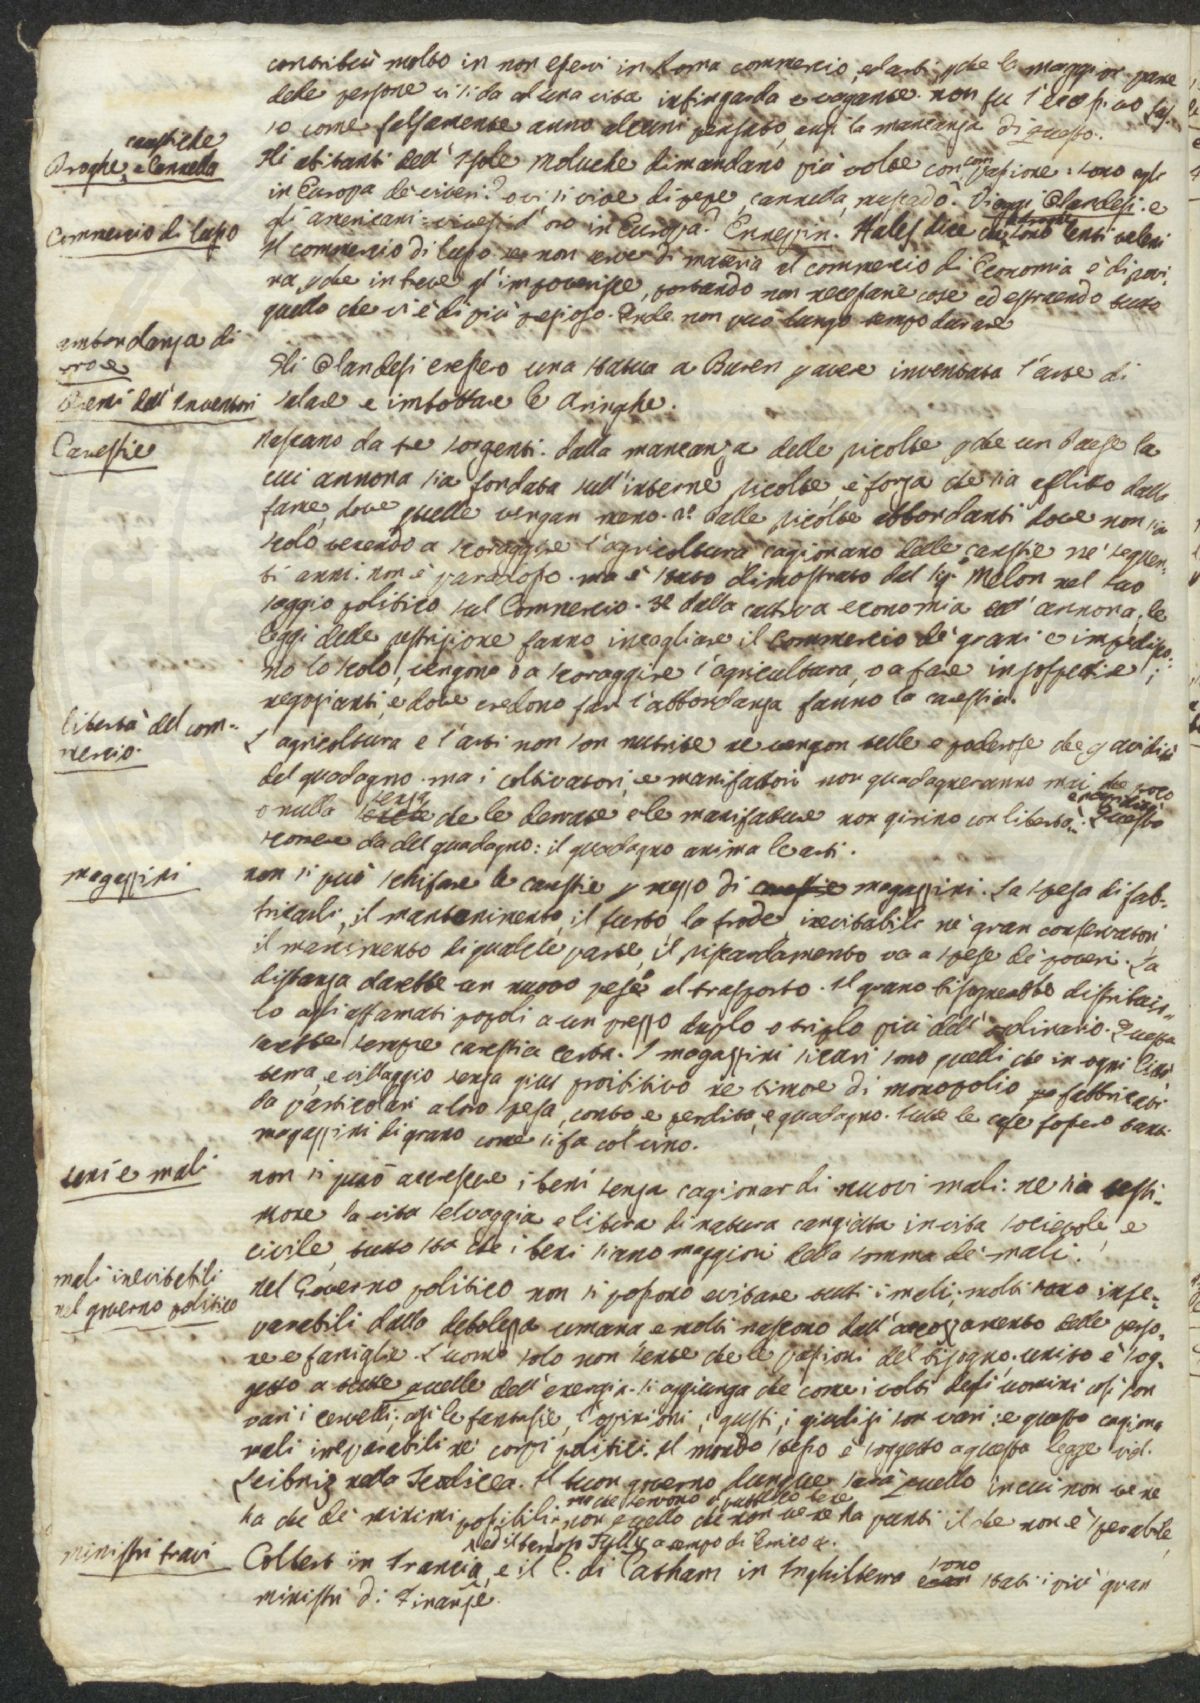 contribuì molto in non esservi in Roma commercio, ed arti, pche la maggior parte
delle persone vi si da ad una vita infingarda e vagante. non fu l'eccessivo lus-
so come falsamente anno alcuni pensato, anzi la mancanza di questo.
caustiche
Droghe, e Cannella
Gli abitanti dell'Isole Moluche dimandano più volte con compassione: sono egli
in Europa de' viveri? ovi si vive di pepe, cannella, noscado? Viaggi Olandesi. e
gli americani: vivesi d'oro in Europa? Hales dice che le droghe sono lenti veleni
Commercio di lusso
Il commercio di lusso se non serve di materia al commercio di Economia è di rovi-
na, pche in breve s'impoverisce, portando non necessarie cose ed estraendo tutto
quello che vi è di più prezioso. Onde non può lungo tempo durare
Premi dell'Inventori
Gli Olandesi eressero una statua a Buren p avere inventata l'arte di
salare e imbottare le Aringhe.
Carestie
Nascano da tre sorgenti. dalla mancanza delle ricolte pche un Paese la
cui annona sia fondata sull'interne ricolte, è forza che sia afflitto dalla
fame, dove quelle vengan meno. 2º dalle ricolte abbondanti dove non sia
scolo venendo a scoraggire l'agricoltura cagionano delle carestie ne' seguen-
ti anni. non è paradosso. ma è stato dimostrato dal Sigr Melon nel suo
saggio politico sul Commercio. 3º dalla cattiva economia dell'annona, le
leggi delle restrizione fanno incagliare il commercio de' grani e impedisco-
no lo scolo, vengono o a scoraggire l'agricultura, o a fare insospettire i
negozianti, e dove credono far l'abbondanza fanno la carestia.
libertà del com-
mercio.
L'agricoltura e l'arti non son nutrite ne vengon belle e poderose che p avidità
del guadagno. ma i coltivatori, e manifattori non guadagneranno mai che poco
o nulla senza che le derrate e le manifatture non girino con libertà. Questo
scorrere da del guadagno: il guadagno anima le arti.
magazzini
non si può schifare le carestie p mezzo di carestie magazzini. La spesa di fab-
bricarli, il mantenimento, il furto, la frode, inevitabili ne' gran conservatori
il marcimento di qualche parte, il riscaldamento va a spese de' poveri. La
distanza darebbe un nuovo peso al trasporto. Il grano bisognerebbe distribuir-
lo agli affamati popoli a un prezzo duplo o triplo più dell'ordinario. Questa
sarebbe sempre carestia certa. I magazzini sicuri sono quelli che in ogni Città
terra, e villaggio senza gius proibitivo ne timore di monopolio fabbricati
da particolari a loro spesa, conto e perdita, e guadagno. tutte le case fossero tanti
magazzini di grano come si fa col vino.
beni e mali
non si può accrescere i beni senza cagionar di nuovi mali: ne sia testi-
mone la vita selvaggia e libera di natura cangiata in vita socievole, e
civile, tutto sta che i beni siano maggiori della somma de' mali.
mali inevitabili
nel governo politico
nel Governo politico non si possono evitare tutti i mali; molti sono inse-
parabili dalla debolezza umana e molti nascono dall'accozzamento delle perso-
ne e famiglie. L'uomo solo non sente che le passioni del bisogno. unito è sog-
getto a tutte quelle dell'energia. si aggiunga che come i volti degli uomini così son
vari i cervelli; così le fantasie, l'opinioni, i gusti, i giudizi son vari; e questo cagiona
mali irreparabili ne' corpi politici. Il mondo stesso è soggetto a questa legge
Leibniz nella Teodicea. Il buon governo dunque sarà quello in cui non ve ne
ha che de' minimi possibili, ma che servono al pubblico bene, non quello che non ve ne ha punti il che non è sperabile
ministri bravi
ed il famoso Sylly a tempo di Enrico 4.
Colbert in Francia, e il C. di Catham in Inghilterra sono stati i più gran
ministri di Finanze.